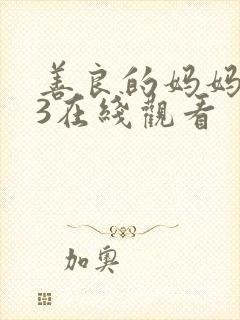 善良的妈妈
3在綫觀看
加奥